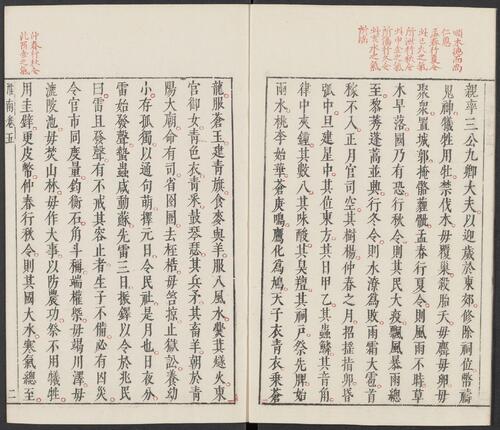 順木德而尚
仁恩
孟春行夏令
則巳火之氣
所泄行秋令
則申金之氣
所傷行冬令
則亥水之氣
所淫
親率三公九卿大夫以迎歲於東郊修除祠位幣禱
鬼神犧牲用牡禁伐木毋覆巢殺胎夭毋麛毋卵毋
聚衆置城郭掩骼薶骴孟春行夏令則風雨不時草
木早落國乃有恐行秋令則其民大疫飄風暴雨總
至黎莠蓬蒿並興行冬令則水潦為敗雨霜大雹首
稼不入正月官司空其樹楊仲春之月招搖指卯昏
弧中旦建星中其位東方其日甲乙其蟲鱗其音角
律中夾鍾其數八其味酸其臭羶其祀戶祭先脾始
雨水桃李始華蒼庚鳴鷹化為鳩天子衣青衣乘蒼
龍服蒼玉建青旗食麥與羊服八風水爨其燧火東
官御女青色衣青采鼓琴瑟其兵矛其畜羊朝於青
陽太廟命有司省囹圄去桎梏毋笞掠止獄訟養幼
小存孤獨以通句萌擇元日令民社是月也日夜分
雷始發聲蟄蟲咸動蘇先雷三日振鐸以令於兆民
曰雷且發聲有不戒其容止者生子不備必有凶災
令官市同度量鈞衡石角斗稱端權槩毋竭川澤毋
漉陂池毋焚山林毋作大事以防農功祭不用犧牲
用圭璧更皮幣仲春行秋令則其國大水寒氣總至
仲春行秋令
則酉金之氣
淮南卷五 二